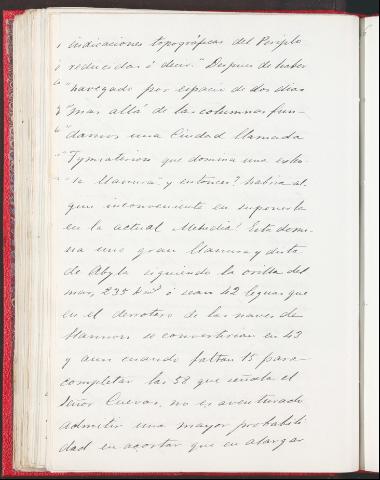 indicaciones topográficas del Periplo
reducidas á decir "Despues de haber
"navegado por espacio de dos dias
"mas allá de las columnas fun-
"damos una Ciudad llamada
"Tymiaterion que domina una vas-
"ta llanura" y entonces? habria al-
gun inconveniente en suponerla
en la actual Mehidia? Esta domi-
na una gran llanura y dista
de Abyla siguiendo la orilla del
mar, 235 kms ó sean 42 leguas que
en el derrotero de las naves de
Hannon se convertirian en 43
y aun cuando faltan 15 para
completar las 58 que señala el
Señor Cuevas, no es aventurado
admitir una mayor probabili
dad en acortar que en alargar